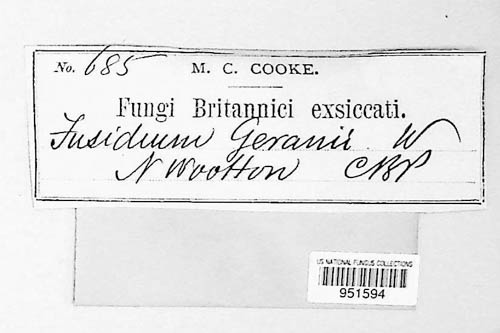 No. 685 M. C. COOKE.
Fungi Britannici exsiccati.
Fusidium Geranii W
N Wootton CBP
US NATIONAL FUNGUS COLLECTIONS
951594